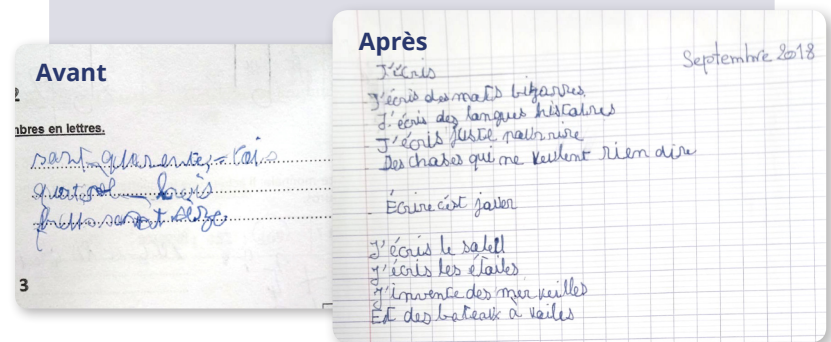 Avant
nbres en lettres.
sant-quarente-trois
3
Après
Septembre 2018
J'écris
J'écris des mots bizarres
J'écris des langues histoires
J'écris juste pour rire
Des choses qui ne veulent rien dire
Écrire c'est jouer
J'écris le soleil
J'écris les étoiles
J'invente des merveilles
Et des bateaux à voiles